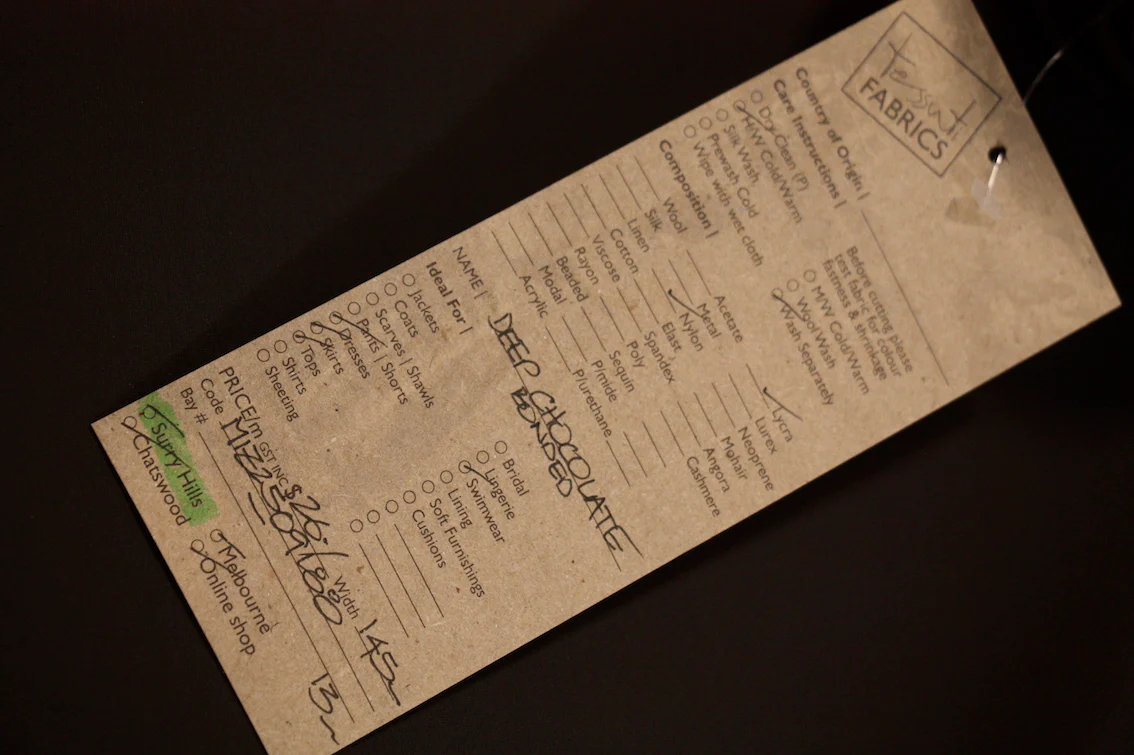 tessuti
FABRICS
Country of Origin |
Care Instructions |
Before cutting please
test fabric for colour
fastness & shrinkage
Dry Clean (P)
H/W Cold/Warm
Silk Wash
Prewash Cold
Wipe with wet cloth
M/W Cold/Warm
Wool Wash
Wash Separately
Composition |
Wool
Silk
Linen
Cotton
Viscose
Rayon
Beaded
Modal
Acrylic
Acetate
Metal
Nylon
Elast
Spandex
Poly
Sequin
P/mide
P/urethane
Lycra
Lurex
Neoprene
Mohair
Angora
Cashmere
NAME | DEEP CHOCOLATE
BONDED
Ideal For |
Jackets
Coats
Scarves | Shawls
Pants | Shorts
Dresses
Skirts
Tops
Shirts
Sheeting
Bridal
Lingerie
Swimwear
Lining
Soft Furnishings
Cushions
PRICE/m GST INC $26 Width 145
Code
Bay # 13m
Surry Hills
Chatswood
Melbourne
Online shop